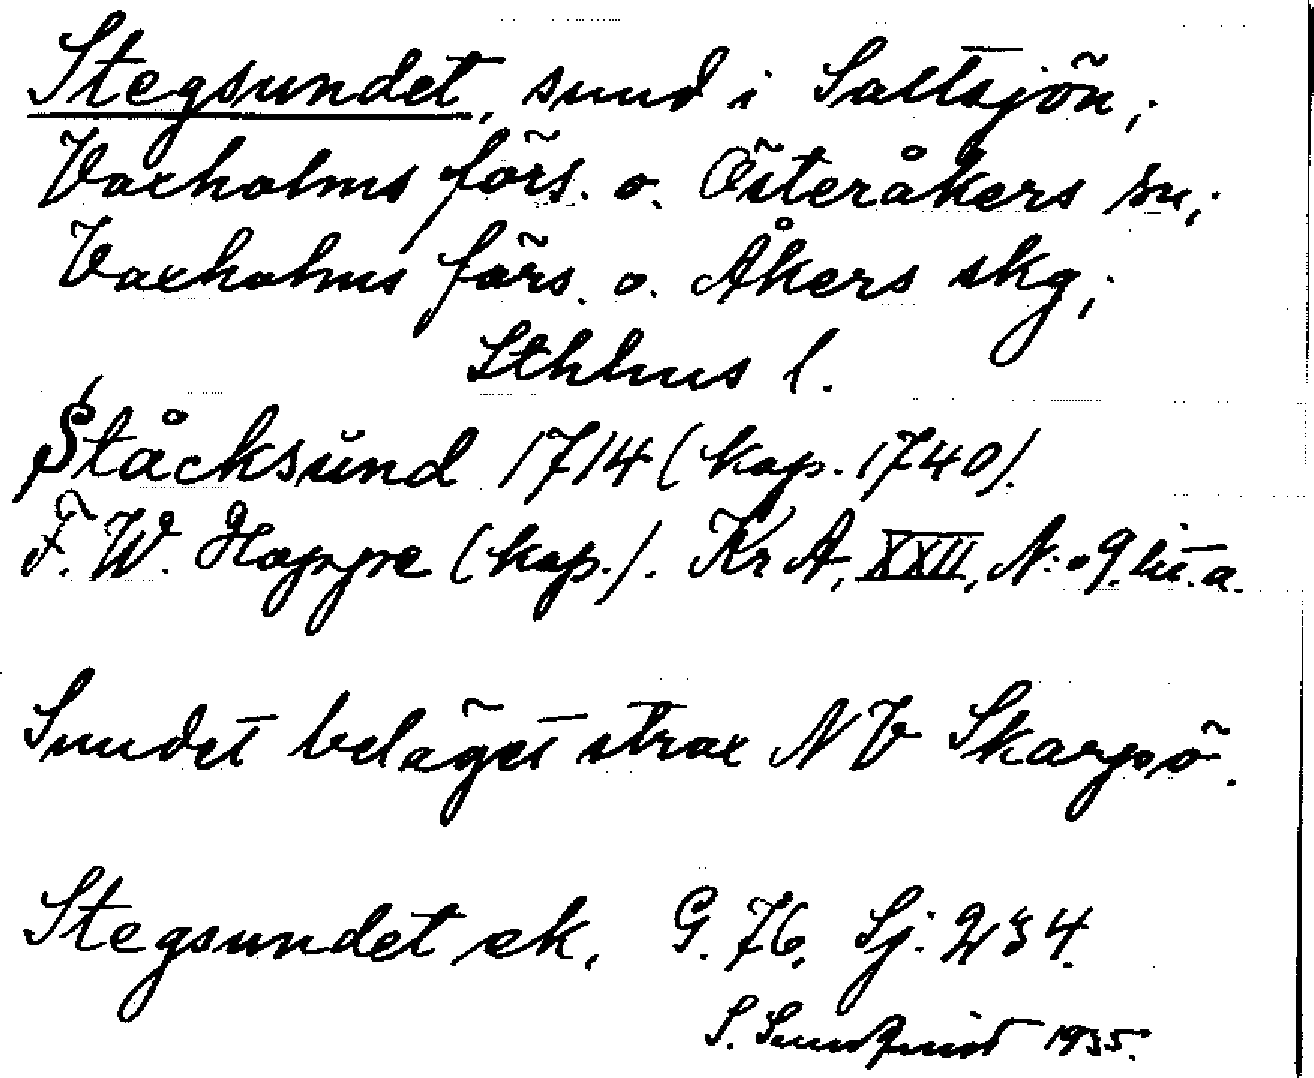 Stegsundet, sund i Saltsjön;
Vaxholms förs. o. Österåkers sn;
Vaxholms förs. o. Åkers skg;
Sthlms l.
Ståcksund 1714 (kop. 1740).
F. W. Hoppe (kop.). Kr A, XXII, N:o 9. lit. a.
Sundet beläget strax NV Skarpö.
Stegsundet ek. G. 76. Sj: 234.
S. Sundqvist 1935.